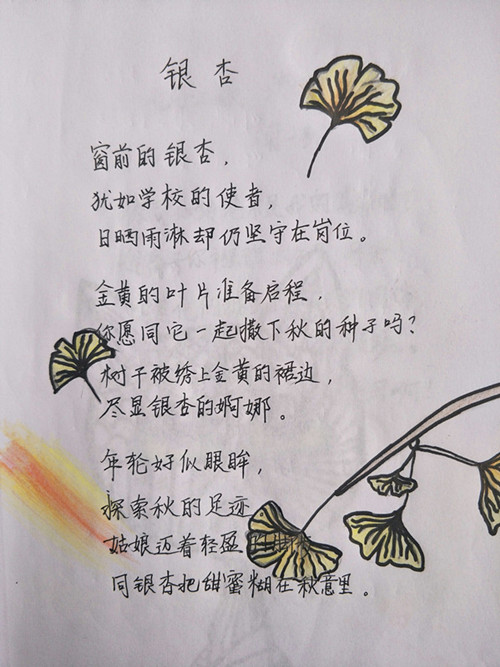 银杏
窗前的银杏，
犹如学校的使者，
日晒雨淋却仍坚守在岗位。
金黄的叶片准备启程，
你愿同它一起撒下秋的种子吗？
树干被绣上金黄的裙边，
尽显银杏的婀娜。
年轮好似眼眸，
探索秋的足迹
姑娘迈着轻盈的
同银杏把甜蜜糊在秋意里。